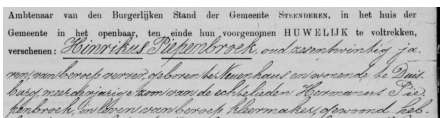 Ambtenaar van den Burgerlijken Stand der Gemeente STEENDEREN, in het huis der
Gemeente in het openbaar, ten einde hun voorgenomen HUWELIJK te voltrekken,
verschenen: Hinrikus Piepenbroek, oud zesentwintig ja-
ren, van beroep verver, geboren te Neuenhaus en wonende te Duis-
burg, meerderjarige zoon van de echtelieden Hermannus Pie-
penbroek, in leven van beroep kleermaker, gewoond heb-